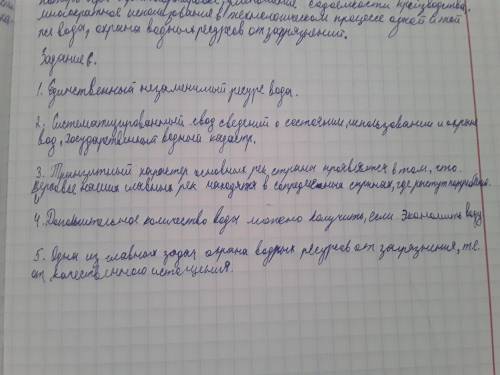 многократное использование в технологическом процессе одной и той
же воды, охрана водных ресурсов от загрязнений.
Задание 6.
1. Единственный незаменимый ресурс вода.
2. Систематизированный свод сведений о состоянии, использовании и охране
вод, государственный водный кадастр.
3. характер основных рек страны проявляется в том, что
верховье наших главных рек находятся в сопредельных странах, где
4. Дополнительное количество воды можно получить, если экономить воду
5. Одна из главных задач охрана водных ресурсов от загрязнения, т.е.
от качественного истощения.